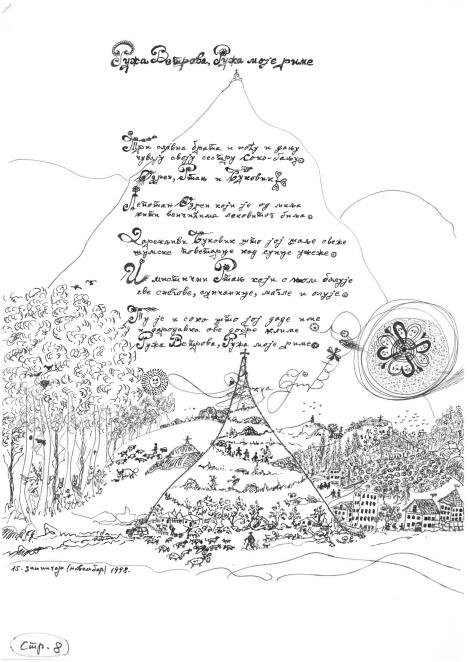 Ружа Ветрова, Ружа моје риме
Три славна брата и ноћу и дању
чувају своју сестру Соко-Бању
Озрен, Ртањ и Буковик
Лепотан Озрен који је од миља
кити венчићима лековитог биља
Дарежљиви Буковик што јој шаље свеже
шумске поветарце кад сунце ужеже
И мистични Ртањ који с њом болује
све снегове, олује
Ту је и соко што јој даде име
ове добро
Ружа Ветрова, Ружа моје риме
15. (новембар) 1998.
Стр. 8